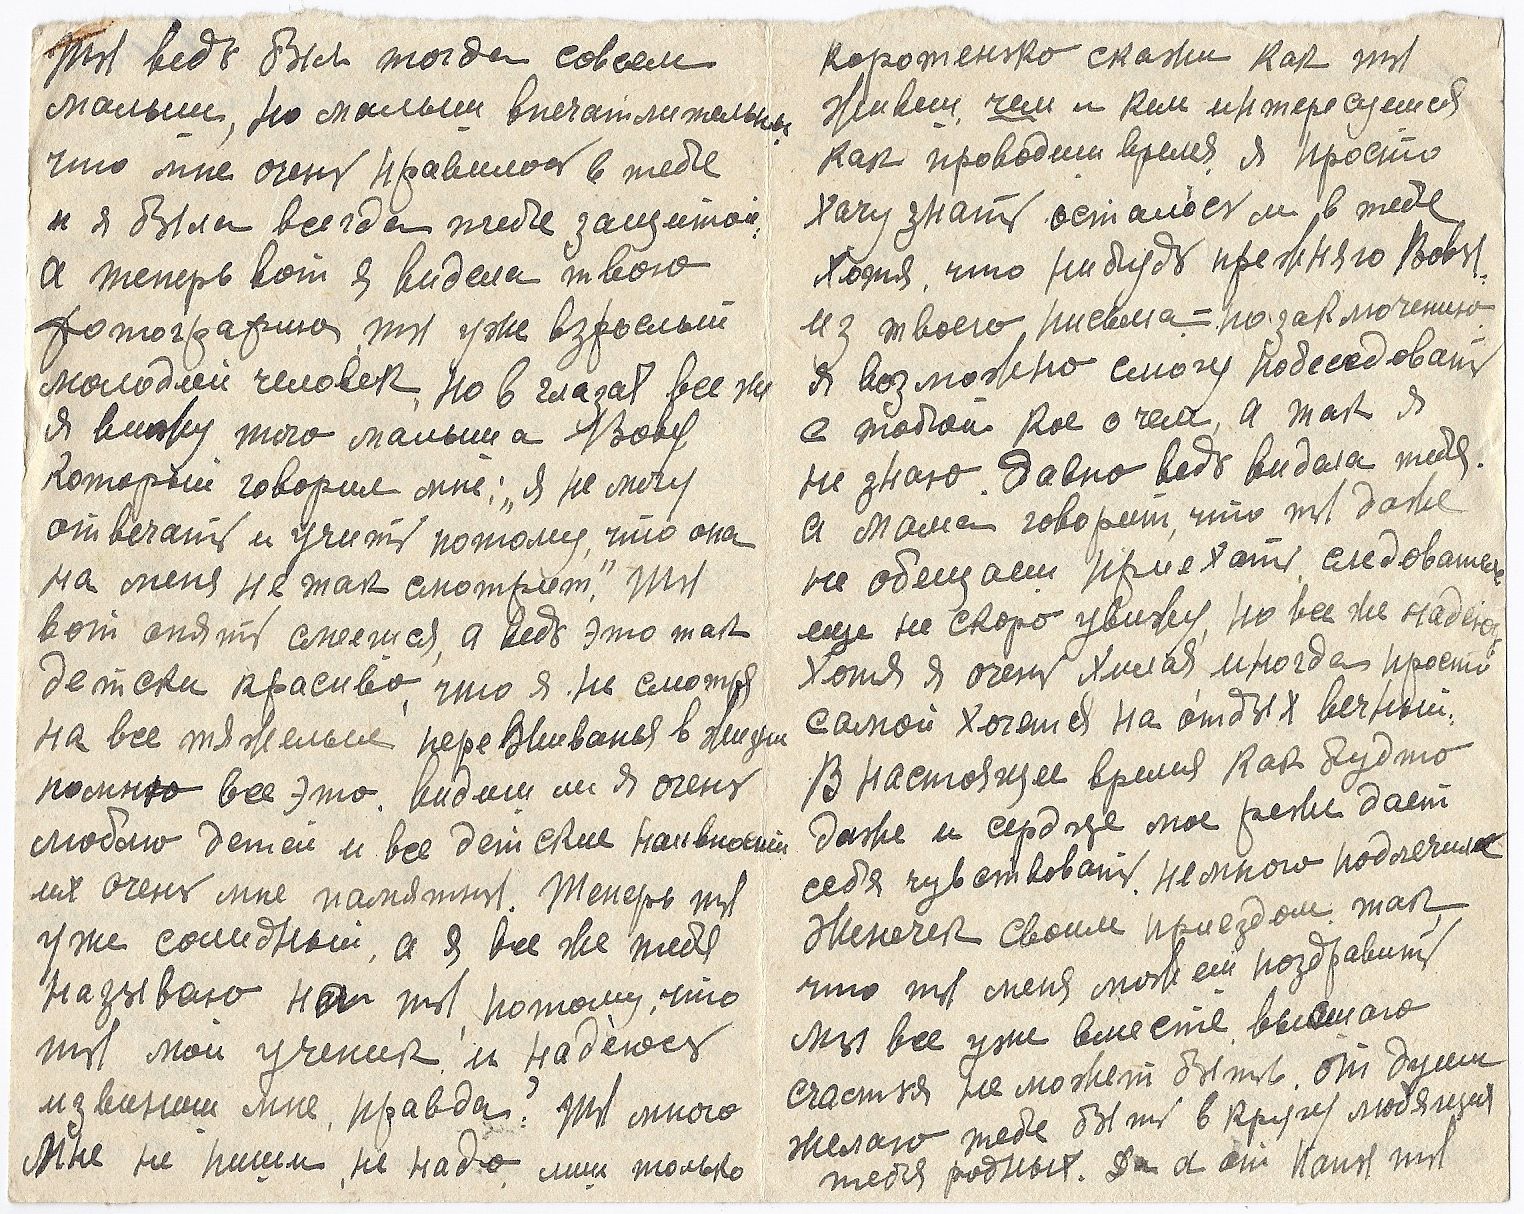 Ты ведь был тогда совсем
малыш, но малыш впечатлительный
что мне очень нравилось в тебе
и я была всегда тебе защитой.
А теперь вот я видела твою
фотографию, ты уже взрослый
молодой человек, но в глазах все же
я вижу того малыша Вову
который говорил мне: "я не могу
отвечать и учить потому, что она
на меня не так смотрит." Ты
вот опять смеешся, а ведь это так
детски красиво, что я не смотря
на все тяжелые переживанья в жизни
помню все это. Видиш ли я очень
люблю детей и все детские наивности
их очень мне памятны. Теперь ты
уже солидный, а я все же тебя
называю на ты, потому, что
ты мой ученик и надеюсь
извиниш мне, правда? Ты много
мне не пиши, не надо, лиш только
коротенько скажи как ты
живеш, чем и кем интересуешся
как проводиш время, я просто
хочу знать осталось ли в тебе
хотя, что нибудь прежняго Вовы.
Из твоего письма = по заключению
я возможно смогу побеседовать
с тобой кое о чем, а так я
не знаю. Давно ведь видела тебя.
А мама говорит, что ты даже
не обещаеш приехать, следователь.
еще не скоро увижу, но все же надеюсь,
Хотя я очень хилая иногда просто
самой хочется на отдых вечный.
В настоящее время как будто
даже и сердце мое реже дает
себя чувствовать, немного подлечила
Женечек своим приездом. так,
что ты меня можеш поздравить
мы все уже вместе, высшаго
счастья не может быть. От души
желаю тебе быть в кругу любящих
тебя родных. Да а от Нины ты